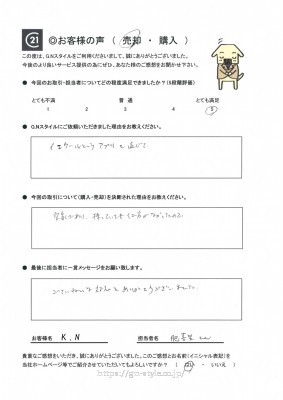 C21 ◎お客様の声 ( 売却 ・ 購入 )
この度は、G.Nスタイルをご利用くださいまして、誠にありがとうございました。
今後のより良いサービス提供の為にぜひ、あなた様のご感想をお聞かせ下さい。
● 今回のお取引・担当者についてどの程度満足できましたか?(5段階評価)
とても不満 普通 とても満足
1 2 3 4 5
● G.Nスタイルにご依頼いただきました理由をお教えください。
アプリ
● 今回の取引について(購入・売却)を決断された理由をお教えください。
● 最後に担当者に一言メッセージをお願い致します。
ありがとうございました
お客様名 K.N 担当者名
貴重なご感想をいただき、誠にありがとうございました。このご感想とお名前(イニシャル表記)を
当社ホームページ等でご紹介させていただいてもよろしいですか? ( はい ・ いいえ )
https://gn-style.co.jp/